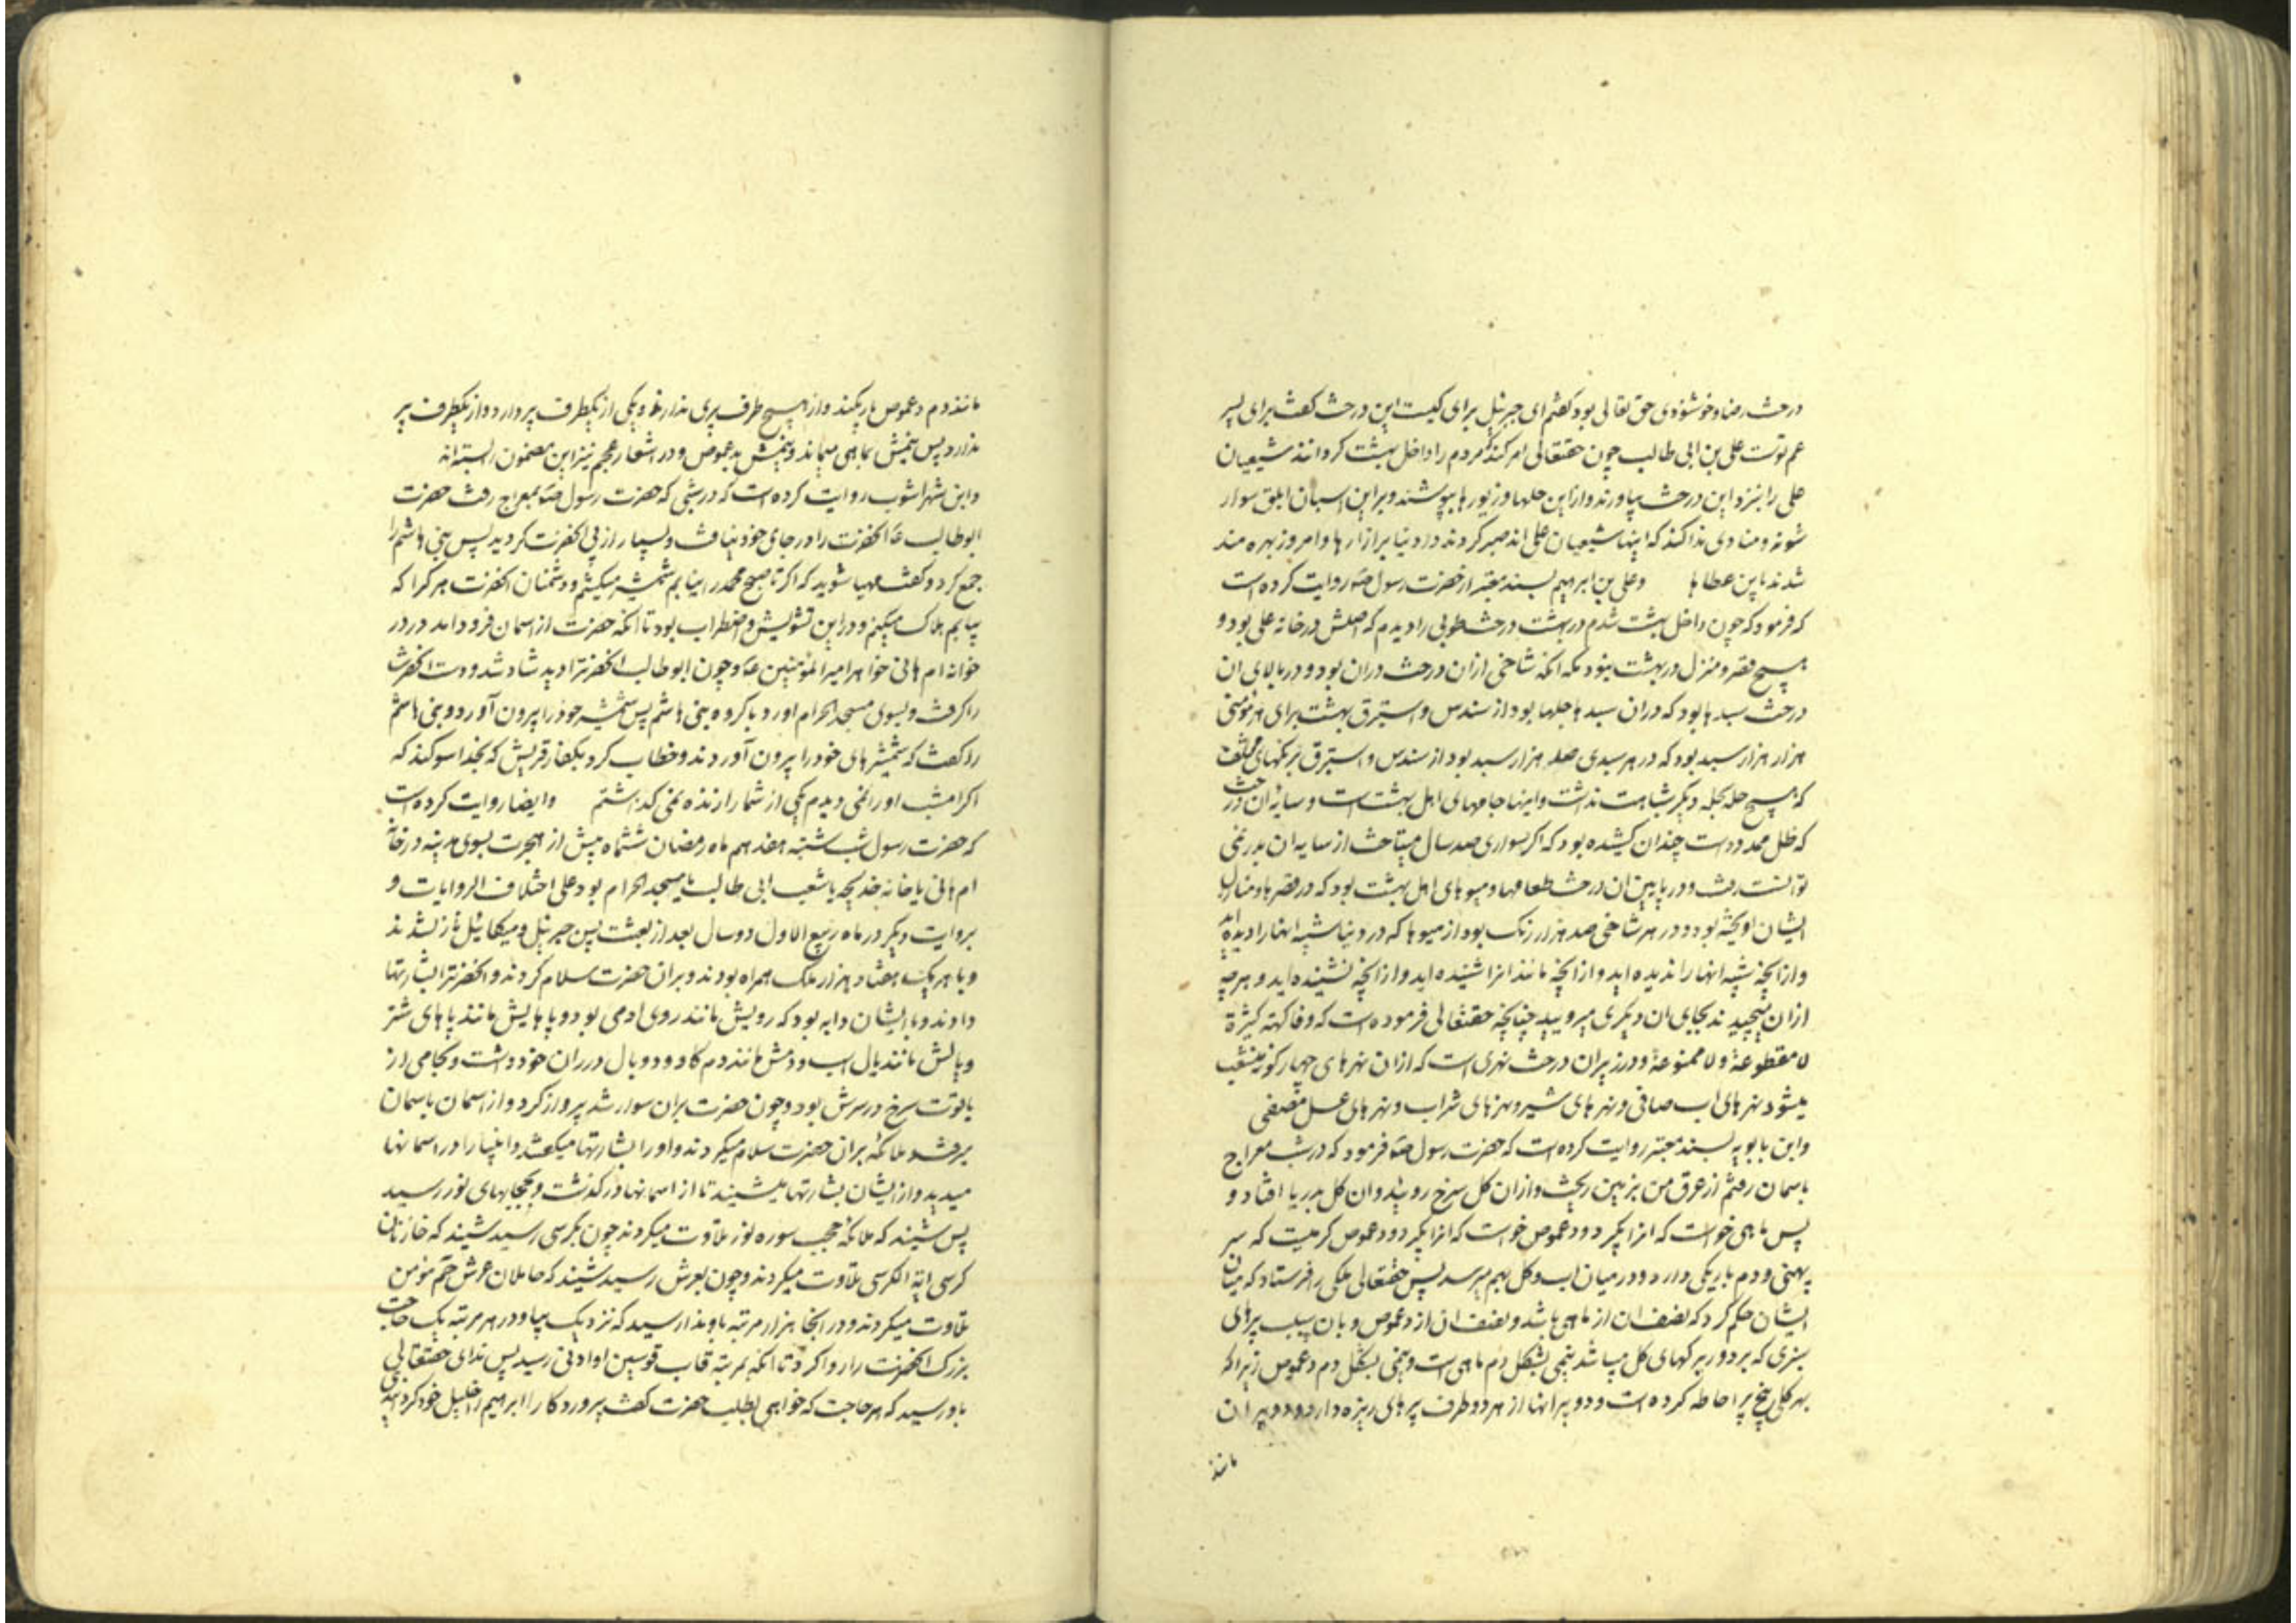 درخت رضا و خوشنودی حق تعالی بود گفتم ای جبرئیل برای کیست این درخت گفت برای پسر
عم توست علی بن ابی طالب چون حقتعالی امر کند که مردم را داخل بهشت کردانند شیعیان
علی را بنزد این درخت بیاورند و ازاین حلها و زیورها بپوشند و براین اسبان ابلق سوار
شوند و منادی ندا کند که اینها شیعیان علی اند صبر کردند در دنیا بر ازارها و امروز بهره مند
شدند باین عطاها و علی بن ابراهیم بسند معتبر از حضرت رسول ص روایت کرده است
که فرمود که چون داخل بهشت شدم در بهشت درخت طوبی را دیدم که اصلش در خانه علی بود و
هیچ قصر و منزل در بهشت نبود مکر انکه شاخی ازان درخت دران بود و در بالای ان
درخت سبدها بود که دران سبدها حلها بود از سندس و استبرق بهشت برای هر مؤمنی
هزار هزار سبد بود که در هر سبدی صد هزار سبد بود از سندس و استبرق برنکهای مختلف
که هیچ حله بحله دیکر شباهت نداشت و اینها جامهای اهل بهشت است و سایه ان درخت
که ظل ممدودست چندان کشیده بود که اکر سواری صد سال میتاخت از سایه ان بدر نمی
توانست رفت و در پایین ان درخت طعامها و میوهای اهل بهشت بود که در قصرها و منازل
ایشان اویخته بود و در هر شاخی صد هزار رنک بود از میوها که در دنیا شبیه انها را دیده اید
و از انچه شبیه انها را ندیده اید و از انچه مانند انرا شنیده اید و از انچه نشنیده اید و هر چه
ازان میچیدند بجای ان دیکری میروییید چنانچه حقتعالی فرموده است که وفاکهة کثیرة
لا مقطوعة ولا ممنوعة و در زیر ان درخت نهری است که ازان نهرهای چهارکونه منشعب
میشود نهرهای اب صافی و نهرهای شیر و نهرهای شراب و نهرهای عسل مصفی
وابن بابویه بسند معتبر روایت کرده است که حضرت رسول ص فرمود که در شب معراج
باسمان رفتم از عرق من بزمین ریخت و ازان کل سرخ رویید و ان کل بدریا افتاد و
پس ماهی خواست که انرا بگیرد و دعموص خواست که انرا بگیرد و دعموص کرمیست که سر
پهنی و دم باریکی دارد و در میان اب و کل بهم میرسد پس حقتعالی ملکی را فرستاد که میان
ایشان حکم کرد که نصف ان از ماهی باشد و نصف ان از دعموص و بان سبب پرهای
سبزی که بر دور برکهای کل میباشد نیمی بشکل دم ماهی است و نیمی بشکل دم دعموص زیرا که
بهر کلی پنج پر احاطه کرده است و دو پر انها از هر دو طرف پرهای ریزه دارد و دو پر ان
مانند
مانند دم دعموص باریکند و از هیچ طرف پری ندارند و یکی از یکطرف پر دارد و از یکطرف پر
ندارد پس نیمش بماهی میماند و نیمش بدعموص و در اشعار عجم نیز این مضمون را بسته اند
وابن شهراشوب روایت کرده است که در شبی که حضرت رسول ص بمعراج رفت حضرت
ابوطالب ع انحضرت را در جای خود نیافت و بسیار از پی انحضرت کردید پس بنی هاشم را
جمع کرد و گفت مهیا شوید که اکر تا صبح محمد را نیابم شمشیر میکشم و دشمنان انحضرت هر کرا که
بیابم هلاک میکنم و دراین تشویش و اضطراب بود تا انکه حضرت از اسمان فرود امد در در
خوانه ام هانی خواهر امیرالمؤمنین ع و چون ابوطالب انحضرترا دید شاد شد و دست انحضرت
را گرفت و بسوی مسجد الحرام اورد با گروه بنی هاشم پس شمشیر خود را بیرون آورد و بنی هاشم
را گفت که شمشیرهای خود را بیرون آوردند و خطاب کرد بکفار قریش که بخدا سوکند که
اکر امشب او را نمی دیدم یکی از شما را زنده نمی گذاشتم و ایضا روایت کرده است
که حضرت رسول شب شنبه هفدهم ماه رمضان ششماه پیش از هجرت بسوی مدینه در خانه
ام هانی یا خانه خدیجه یا شعب ابی طالب یا مسجد الحرام بود علی اختلاف الروایات و
بروایت دیکر در ماه ربیع الاول دو سال بعد از بعثت پس جبرئیل و میکائیل نازل شدند
و با هر یک هفتاد هزار ملک همراه بودند و بران حضرت سلام کردند و انحضرترا بشارتها
دادند و با ایشان دابه بود که رویش مانند روی ادمی بود و پاهایش مانند پاهای شتر
و یالش مانند یال اسب و دمش مانند دم کاو و دو بال در ران خود داشت و لجامی از
یاقوت سرخ در سرش بود و چون حضرت بران سوار شد پرواز کرد و از اسمان باسمان
میرفت و ملائکه بران حضرت سلام میکردند و او را بشارتها میکفتند و انبیا را در اسمانها
میدید و از ایشان بشارتها میشنید تا از اسمانها در گذشت و بحجابهای نور رسید
پس شنید که ملائکه حجب سوره نور تلاوت میکردند چون بکرسی رسید شنید که خازنان
کرسی ایة الکرسی تلاوت میکردند و چون بعرش رسید شنید که حاملان عرش حم مؤمن
تلاوت میکردند و در انجا هزار مرتبه باو ندا رسید که نزدیک بیا و در هر مرتبه یک حاجت
بزرک انحضرت را روا کرد تا انکه بمرتبه قاب قوسین او ادنی رسید پس ندای حقتعالی
باو رسید که هر حاجت که خواهی بطلب حضرت گفت پروردکارا ابراهیم را خلیل خود کردانیدی